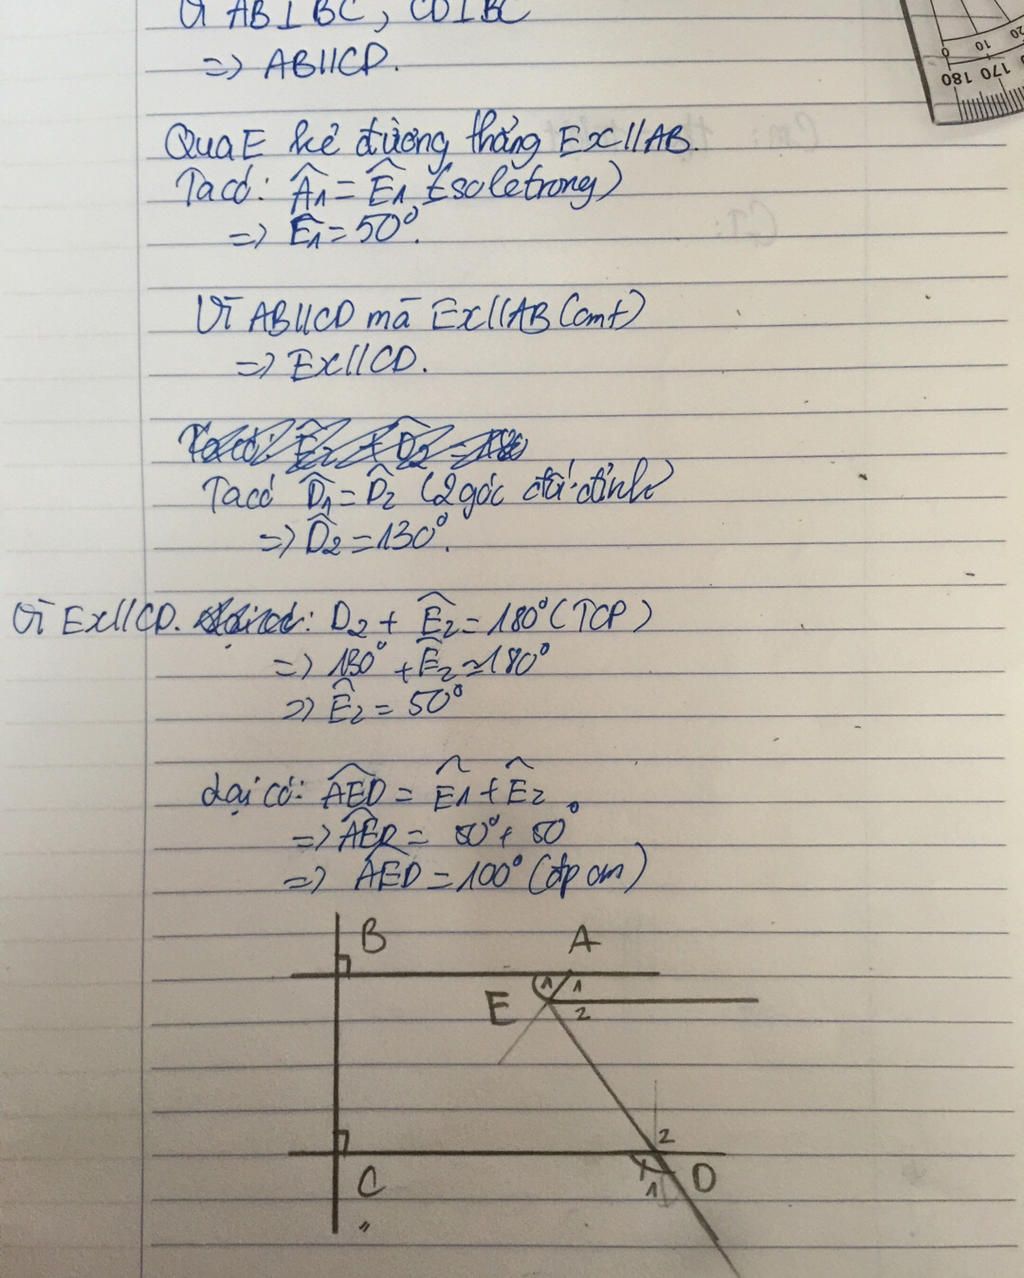 Vì AB⊥BC, CD⊥BC
=> AB//CD.
Qua E kẻ đường thẳng Ex//AB.
Ta có: Â1 = Ê1 (so le trong)
=> Ê1 = 50°.
Vì AB//CD mà Ex//AB (cmt)
=> Ex//CD.
Ta có D̂1 = D̂2 (2 góc đối đỉnh)
=> D̂2 = 130°.
Vì Ex//CD. : D2 + Ê2 = 180° (TCP)
=> 130° + Ê2 = 180°
=> Ê2 = 50°
Lại có: AED = Ê1 + Ê2
=> AED = 50° + 50°
=> AED = 100° (đpcm)
B A
1 1
E 2
2
C 1 D
0 10 20
180 170 16